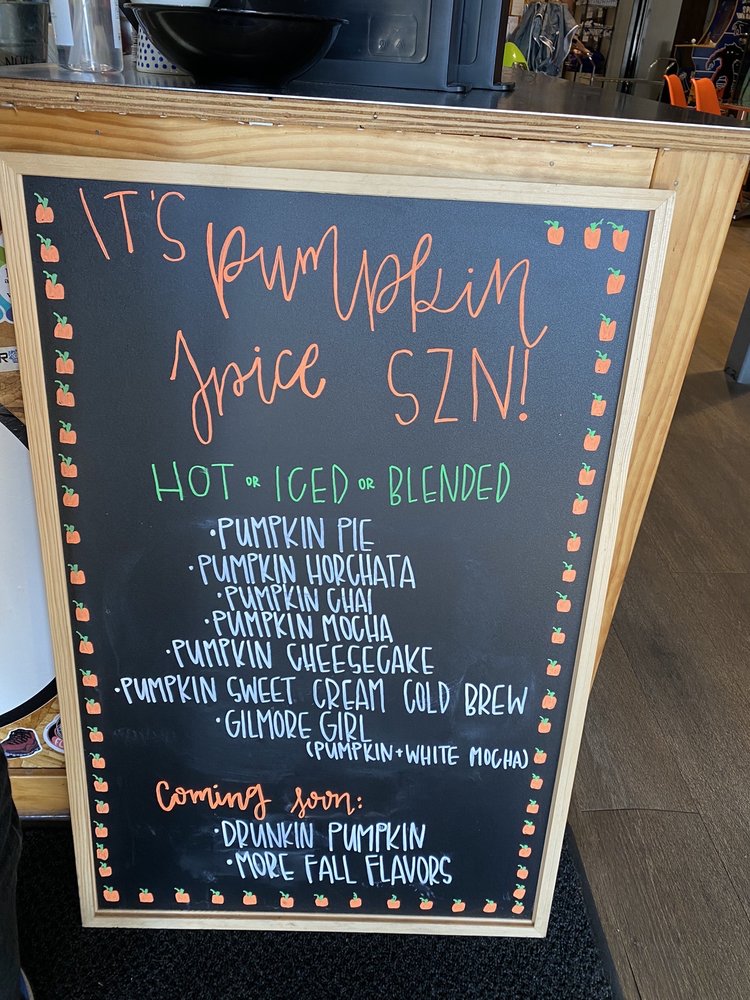 IT'S pumpkin
spice SZN!
HOT OR ICED OR BLENDED
•PUMPKIN PIE
•PUMPKIN HORCHATA
•PUMPKIN CHAI
•PUMPKIN MOCHA
•PUMPKIN CHEESECAKE
•PUMPKIN SWEET CREAM COLD BREW
•GILMORE GIRL
(PUMPKIN+WHITE MOCHA)
Coming soon:
•DRUNKIN PUMPKIN
•MORE FALL FLAVORS